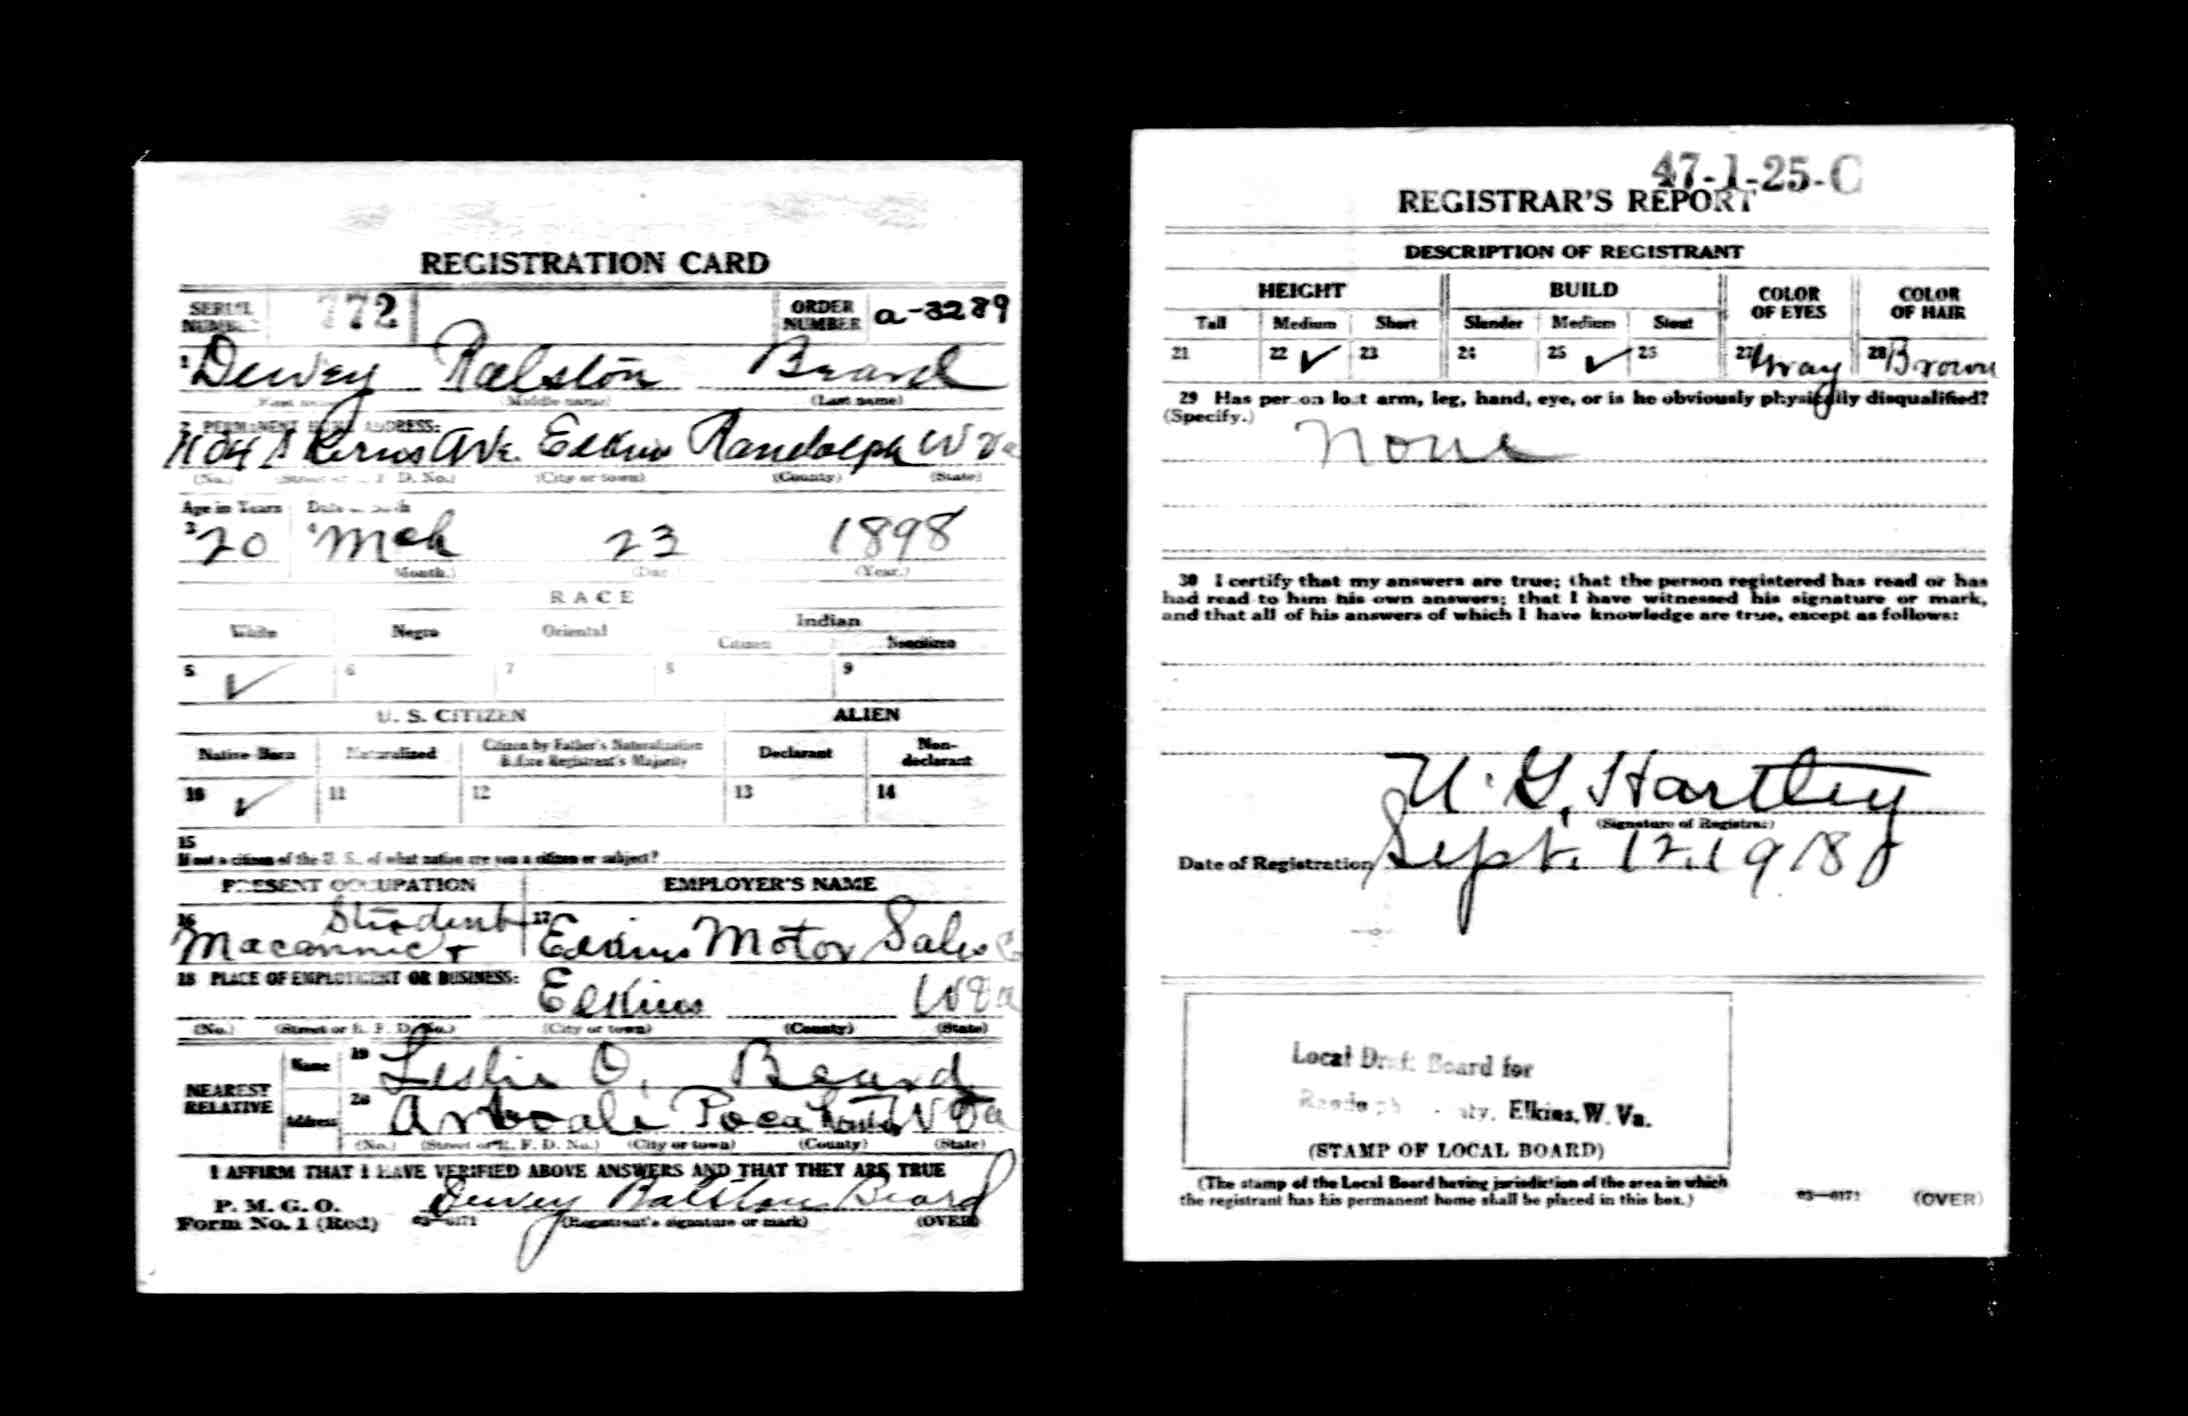 REGISTRATION CARD
SERIAL NUMBER 772 ORDER NUMBER a-3289
1 Dewey Ralston Beard
(First name) (Middle name) (Last name)
2 PERMANENT HOME ADDRESS:
Kerns Ave. Elkins Randolph W Va
(No.) (Street or R. F. D. No.) (City or town) (County) (State)
Age in Years Date of Birth
3 20 4 Mch 23 1898
(Month.) (Day.) (Year.)
RACE
White Negro Oriental Indian
Citizen Noncitizen
5 ✓ 6 7 8 9
U. S. CITIZEN ALIEN
Native Born Naturalized Citizen by Father's Naturalization Before Registrant's Majority Declarant Non-declarant
10 ✓ 11 12 13 14
15
If not a citizen of the U. S., of what nation are you a citizen or subject?
PRESENT OCCUPATION EMPLOYER'S NAME
16 Macannic + Student 17 Elkins Motor Sales Co
18 PLACE OF EMPLOYMENT OR BUSINESS:
Elkins W Va
(No.) (Street or R. F. D. No.) (City or town) (County) (State)
NEAREST RELATIVE
Name 19 Leslie O. Beard
Address 20 Arbovale Pocahontas W Va
(No.) (Street or R. F. D. No.) (City or town) (County) (State)
I AFFIRM THAT I HAVE VERIFIED ABOVE ANSWERS AND THAT THEY ARE TRUE
P. M. G. O.
Form No. 1 (Red) 03—6171 Dewey Ralston Beard
(Registrant's signature or mark) (OVER)
47-1-25-C
REGISTRAR'S REPORT
DESCRIPTION OF REGISTRANT
HEIGHT BUILD COLOR OF EYES COLOR OF HAIR
Tall Medium Short Slender Medium Stout
21 22 ✓ 23 24 25 ✓ 26 27 Gray 28 Brown
29 Has person lost arm, leg, hand, eye, or is he obviously physically disqualified?
(Specify.)
None
30 I certify that my answers are true; that the person registered has read or has
had read to him his own answers; that I have witnessed his signature or mark,
and that all of his answers of which I have knowledge are true, except as follows:
U. G. Hartley
(Signature of Registrar)
Date of Registration Sept. 12. 1918
Local Draft Board for
Randolph County, Elkins, W. Va.
(STAMP OF LOCAL BOARD)
(The stamp of the Local Board having jurisdiction of the area in which
the registrant has his permanent home shall be placed in this box.)
03—6171 (OVER)